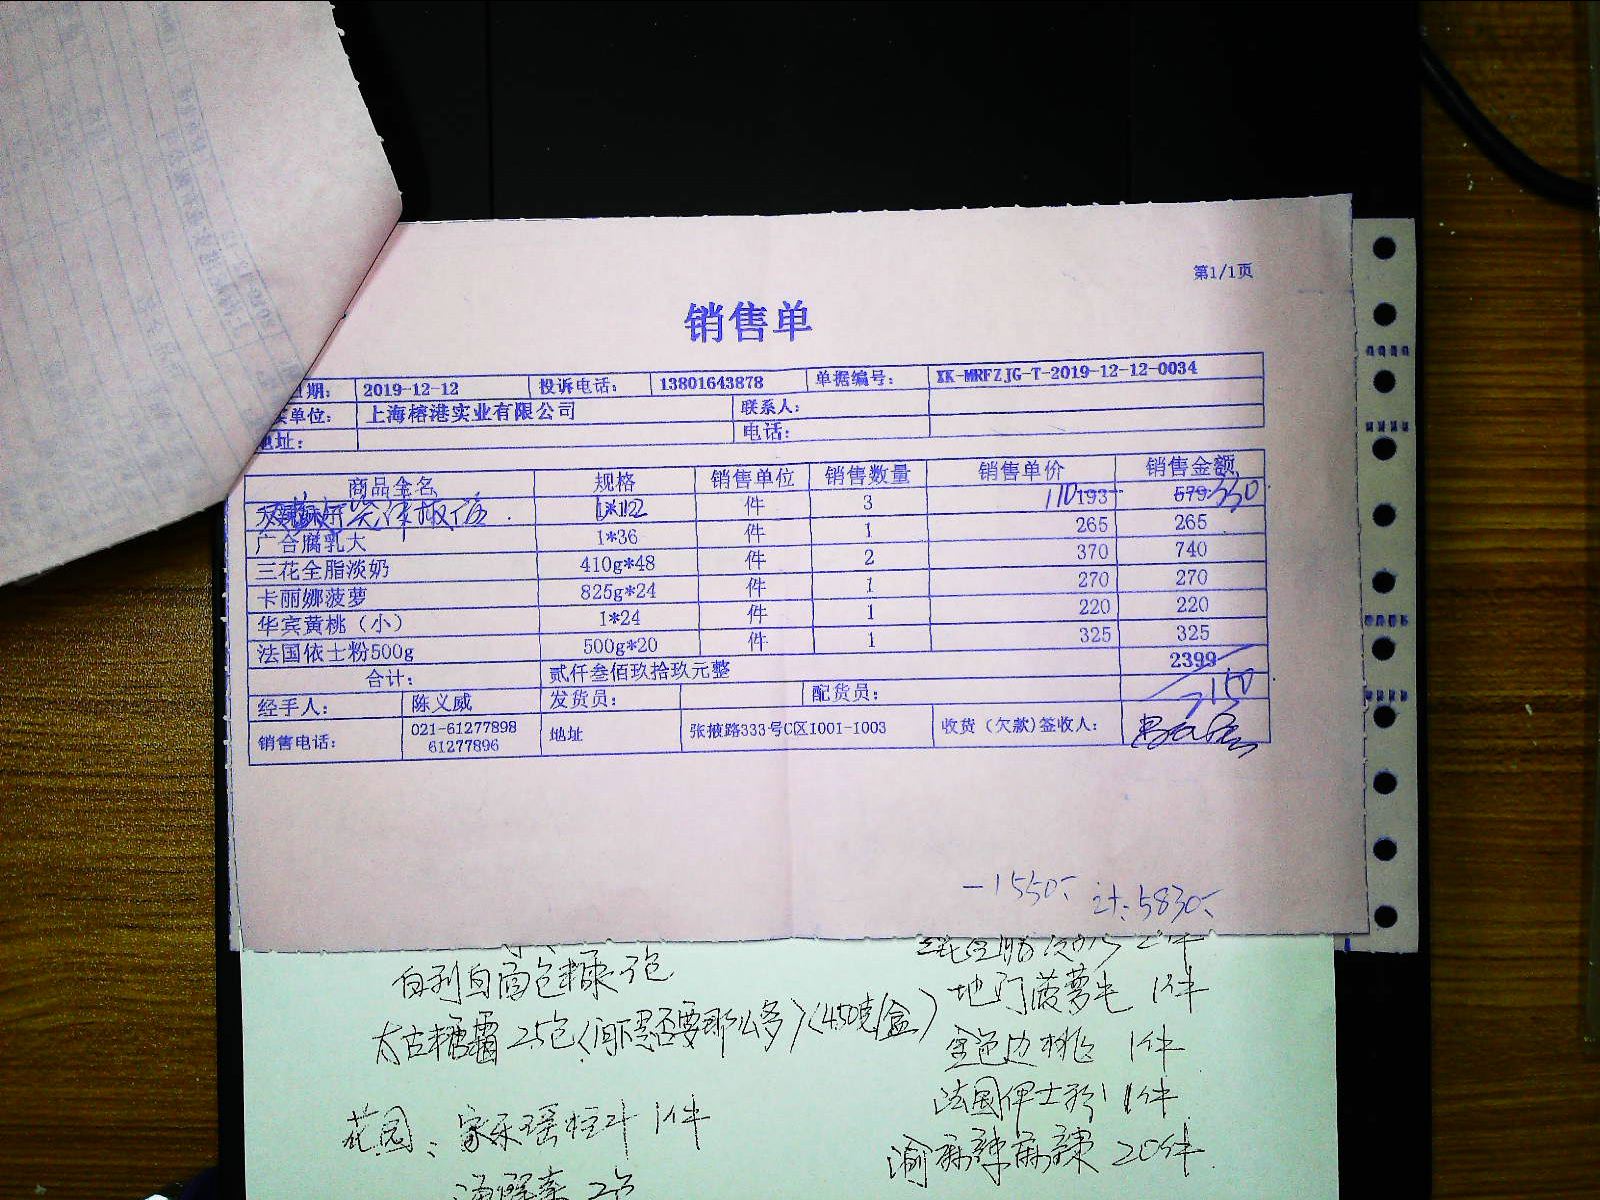 第1/1页
销售单
期: 2019-12-12 投诉电话: 13801643878 单据编号: XK-MRFZJG-T-2019-12-12-0034
单位: 上海榕港实业有限公司 联系人:
地址: 电话:
商品全名 规格 销售单位 销售数量 销售单价 销售金额
件 3 110 193 579 330
广合腐乳大 1*36 件 1 265 265
三花全脂淡奶 410g*48 件 2 370 740
卡丽娜菠萝 825g*24 件 1 270 270
华宾黄桃（小） 1*24 件 1 220 220
法国依士粉500g 500g*20 件 1 325 325
合计: 贰仟叁佰玖拾玖元整 2399
2150
经手人: 陈义威 发货员: 配货员:
销售电话: 021-61277898 61277896 地址 张掖路333号C区1001-1003 收货（欠款)签收人:
-1550
计:5830
三花全脂淡奶 2件
白利自 面包糠 包
地门菠萝 1件
太古糖霜 25包(问下是否要那么多)(450克/盒)
金色边桃 1件
法国伊士粉 1件
花园: 家乐瑶柱汁 1件
渝麻辣麻辣 20件
海鲜素 2包